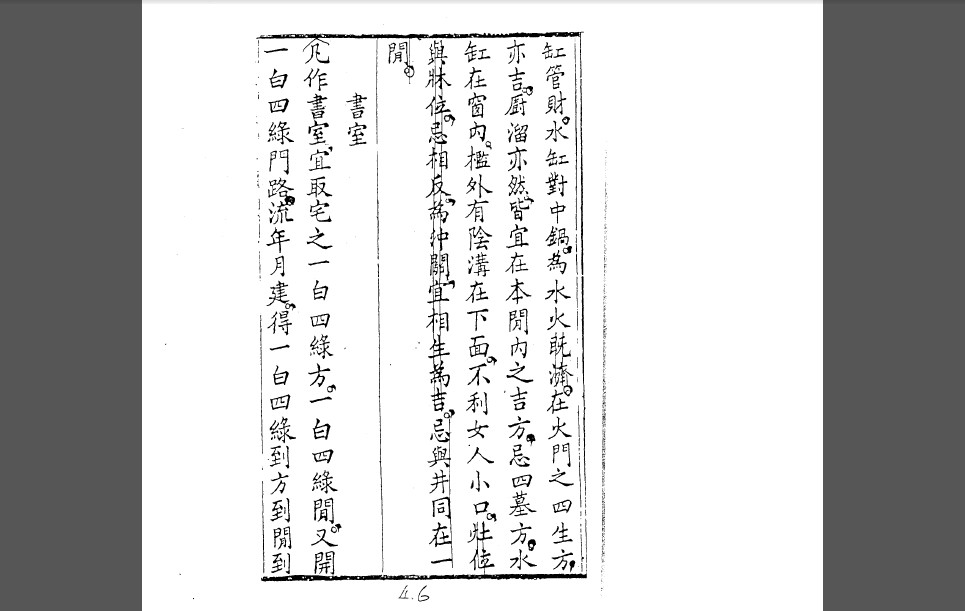 缸管財。水缸對中鍋。為水火旣濟。在火門之四生方。
亦吉。厨溜亦然。皆宜在本閒內之吉方。忌四墓方。水
缸在窗內。檻外有陰溝在下面。不利女人小口。灶位
與牀位。忌相反。為冲關。宜相生為吉。忌與井同在一
閒。
書室
凡作書室。宜取宅之一白四綠方。一白四綠閒。又開
一白四綠門路。流年月建。得一白四綠到方到閒到
4.6